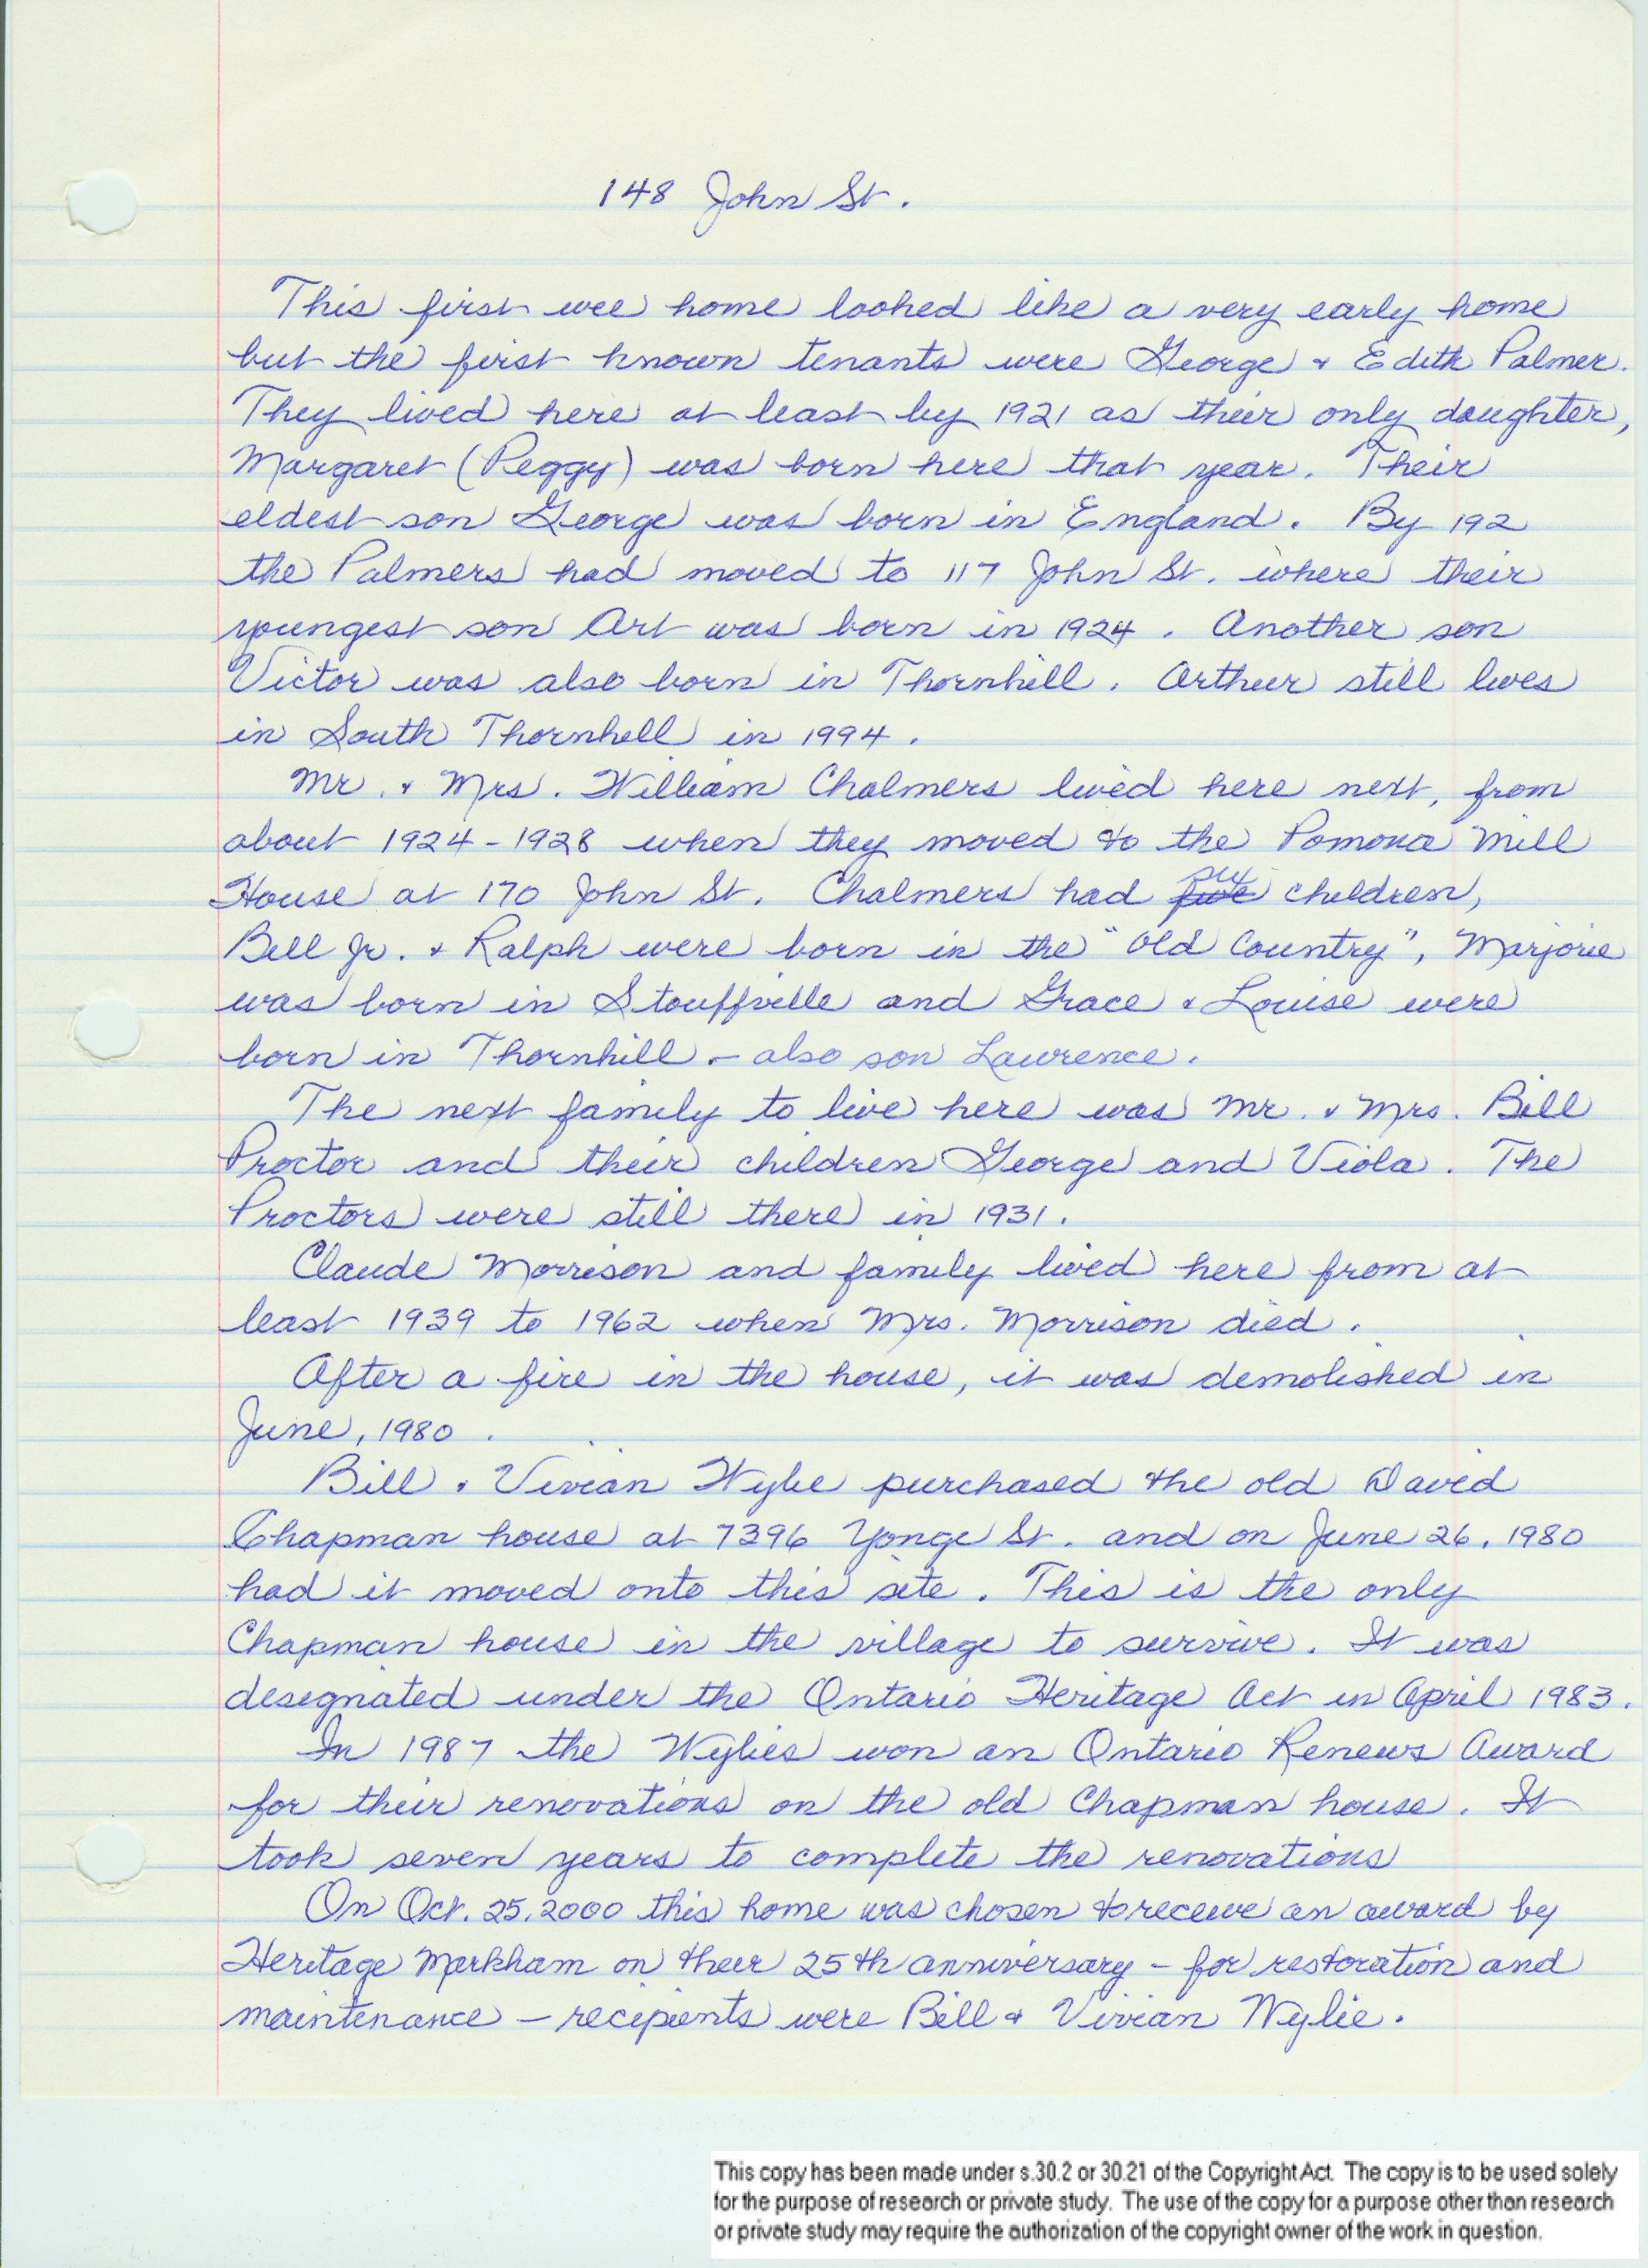 148 John St.
This first wee home looked like a very early home
but the first known tenants were George & Edith Palmer.
They lived here at least by 1921 as their only daughter,
Margaret (Peggy) was born here that year. Their
eldest son George was born in England. By 192
the Palmers had moved to 117 John St. where their
youngest son Art was born in 1924. Another son
Victor was also born in Thornhill. Arthur still lives
in South Thornhill in 1994.
Mr. & Mrs. William Chalmers lived here next, from
about 1924-1928 when they moved to the Pomona Mill
House at 170 John St. Chalmers had ~~five~~ six children,
Bill Jr. & Ralph were born in the "Old Country", Marjorie
was born in Stouffville and Grace & Louise were
born in Thornhill. - also son Lawrence.
The next family to live here was Mr. & Mrs. Bill
Proctor and their children George and Viola. The
Proctors were still there in 1931.
Claude Morrison and family lived here from at
least 1939 to 1962 when Mrs. Morrison died.
After a fire in the house, it was demolished in
June, 1980.
Bill & Vivian Wylie purchased the old David
Chapman house at 7396 Yonge St. and on June 26, 1980
had it moved onto this site. This is the only
Chapman house in the village to survive. It was
designated under the Ontario Heritage Act in April 1983.
In 1987 the Wylies won an Ontario Renews Award
for their renovations on the old Chapman house. It
took seven years to complete the renovations
On Oct. 25, 2000 this home was chosen to receive an award by
Heritage Markham on their 25th anniversary - for restoration and
maintenance - recipients were Bill & Vivian Wylie.
This copy has been made under s.30.2 or 30.21 of the Copyright Act. The copy is to be used solely
for the purpose of research or private study. The use of the copy for a purpose other than research
or private study may require the authorization of the copyright owner of the work in question.